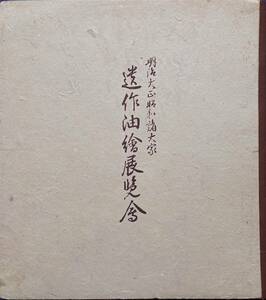 明治大正昭和諸大家
遺作油繪展覧會